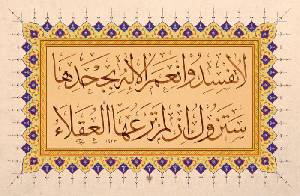 لا تفسدوا نعم الإله بجحدها
ستزول إن لم ترعها العقلاء